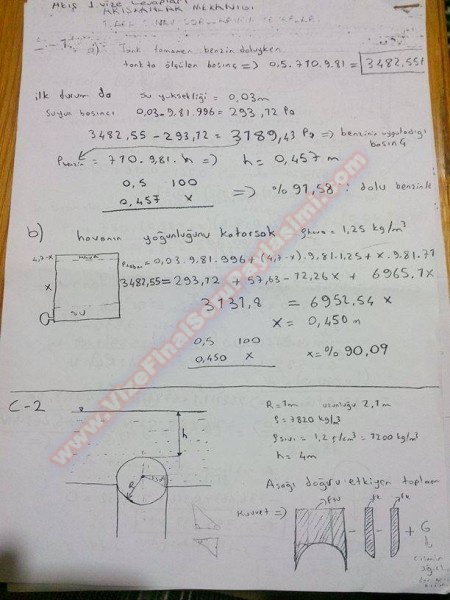 AKIŞKANLAR MEKANİĞİ
a) Tank tamamen benzin doluyken
tankta ölçülen basınç => 0,5.710.9.81 = 3482,55
ilk durum da su yüksekliği = 0,03m
Suyun basıncı 0,03.9.81.996 = 293,12 Pa
3482,55 - 293,12 = 3189,43 Pa => benzinin uyguladığı
basınç
Pbenzin = 710.9,81.h => h = 0,457 m
0,5 100
0,457 x => %91,58 : dolu benzinle
b) havanın yoğunluğunu katarsak ρhava = 1,25 kg/m³
4,7-x HAVA
x
SU
= 0,03.9.81.996 + (4,7-x).9.81.1,25 + x.9.81.71
3482,55 = 293,12 + 57,63 - 12,26x + 6965,1x
3131,8 = 6952,54 x
x = 0,450 m
0,5 100
0,450 x x = % 90,09
C-2
h
R
R = 1m uzunluğu 2,1m
ρ = 7820 kg/m³
ρsıvı = 1,2 g/cm³ = 1200 kg/m³
h = 4m
Aşağı doğru etkiyen toplam
kuvvet => - - + G
www.VizeFinalSoruPaylasimi.com